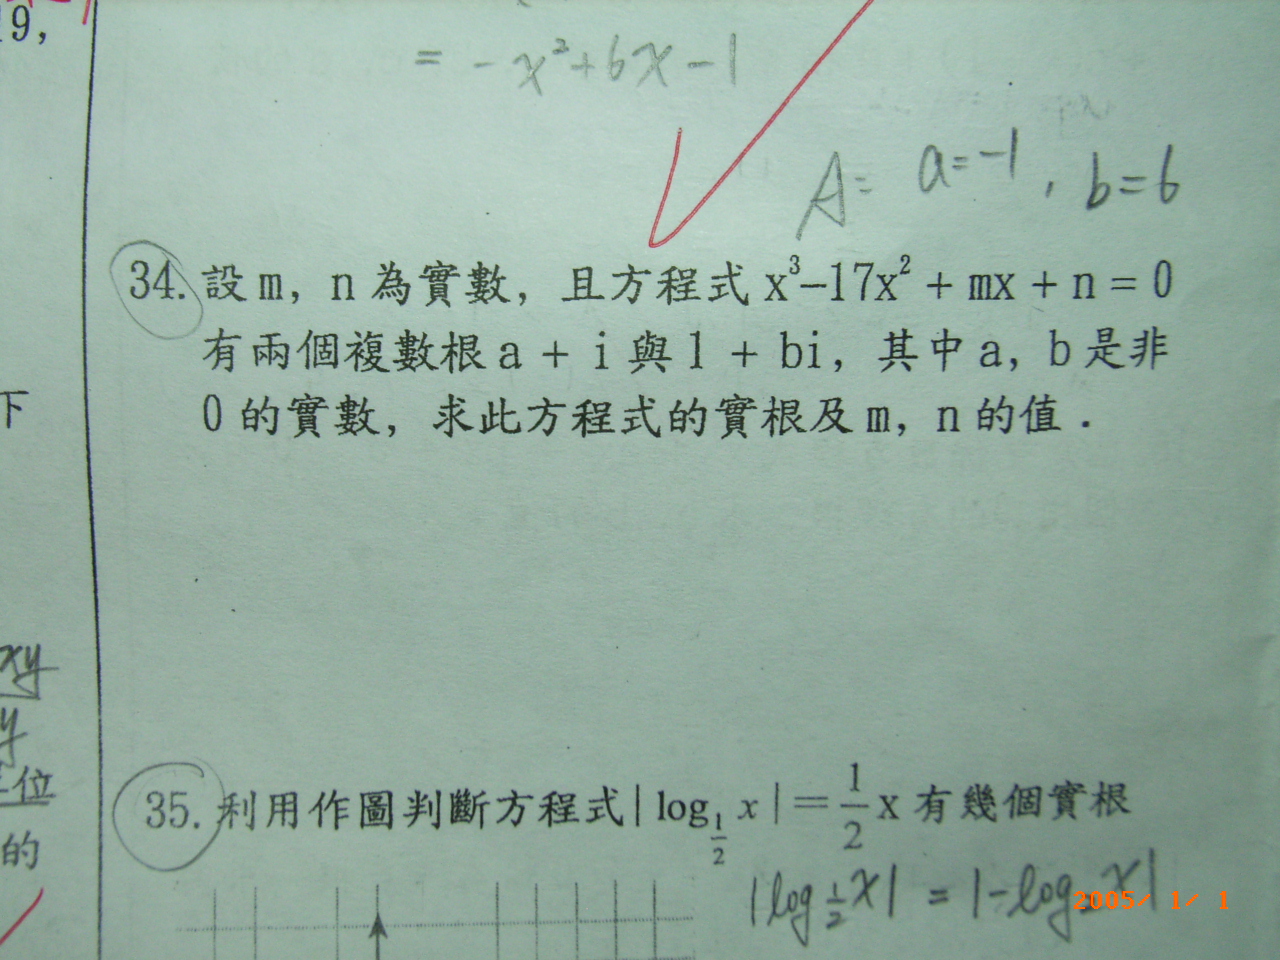 19,
= -x²+6x-1
A= a=-1, b=6
34. 設m, n為實數, 且方程式x³-17x²+mx+n=0
有兩個複數根a+i與1+bi, 其中a, b是非
0的實數, 求此方程式的實根及m, n的值.
下
xy
y
位
的
35. 利用作圖判斷方程式|log_{1/2} x|=1/2 x有幾個實根
|log_{1/2} x| = |-log₂x|
2005/ 1/ 1